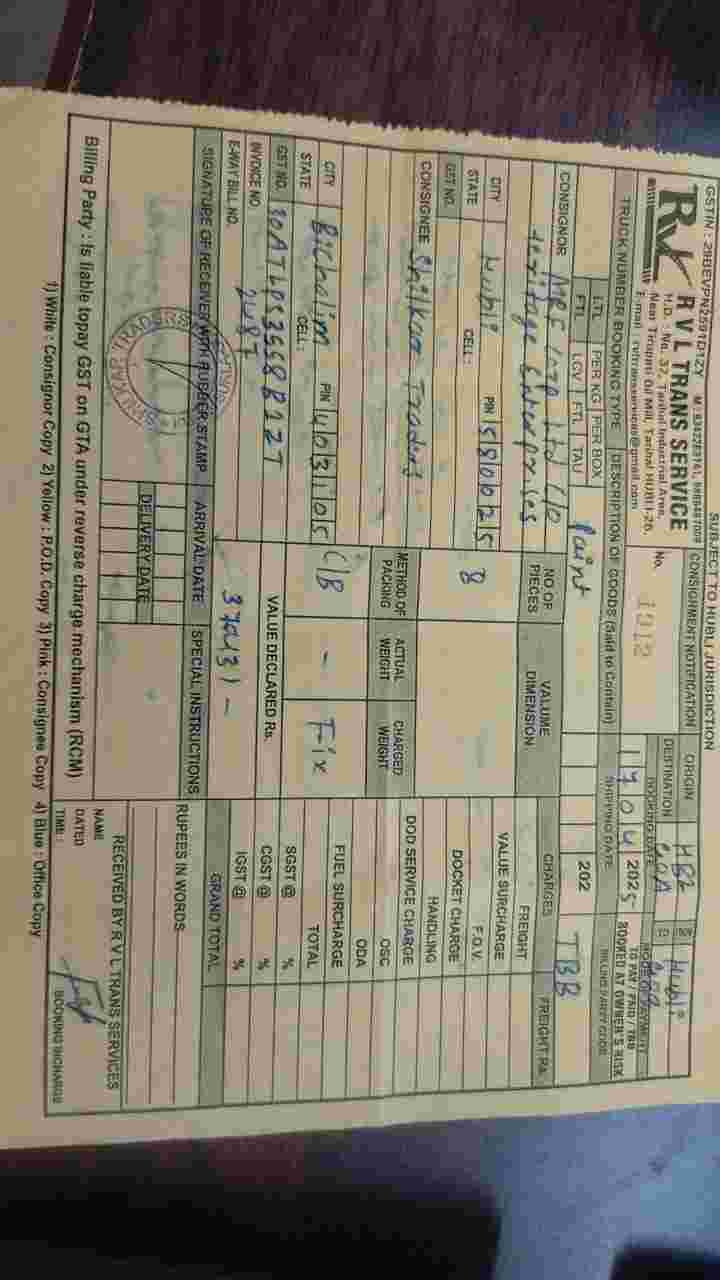 SUBJECT TO HUBLI JURISDICTION
GSTIN : 29BEVPN2591D1ZY
RVL TRANS SERVICE
H.D. : No. 37, Tarihal Industrial Area,
Near Tirupati Oil Mill, Tarihal HUBLI-26.
E-mail : rvltransservices@gmail.com
CONSIGNMENT NOTIFICATION
No. 1912
ORIGIN HBL
DESTINATION GOA
FROM Hubli
TO Goa
TRUCK NUMBER BOOKING TYPE
LTL PER KG PER BOX
FTL LCV FTL TAU
DESCRIPTION OF GOODS (Said to Contain)
Paint
BOOKING DATE
17 04 2025
SHIPPING DATE
202
MODE OF PAYMENT
TO PAY / PAID / TBB
BOOKED AT OWNER'S RISK
BILLING PARTY CODE
TBB
CONSIGNOR MRF Corp Ltd C/o
Heritage Enterprises
CITY Hubli PIN 580025
STATE CELL :
GST NO.
CONSIGNEE Shilkar Traders
CITY Bicholim PIN 403105
STATE CELL :
GST NO.
INVOICE NO 2487
E-WAY BILL NO.
NO OF PIECES
8
VALUME DIMENSION
METHOD OF PACKING
C/B
ACTUAL WEIGHT
-
CHARGED WEIGHT
Fix
VALUE DECLARED Rs.
CHARGES FREIGHT Rs.
FREIGHT
VALUE SURCHARGE
F.O.V.
DOCKET CHARGE
HANDLING
DOD SERVICE CHARGE
OSC
ODA
FUEL SURCHARGE
TOTAL
SGST @ %
CGST @ %
IGST @ %
GRAND TOTAL
SIGNATURE OF RECEIVER WITH RUBBER STAMP
ARRIVAL DATE
DELIVERY DATE
SPECIAL INSTRUCTIONS
RUPEES IN WORDS
RECEIVED BY R V L TRANS SERVICES
NAME
DATED
TIME :
BOOKING INCHARGE
Billing Party : Is liable topay GST on GTA under reverse charge mechanism (RCM)
1) White : Consignor Copy 2) Yellow : P.O.D. Copy 3) Pink : Consignee Copy 4) Blue : Office Copy